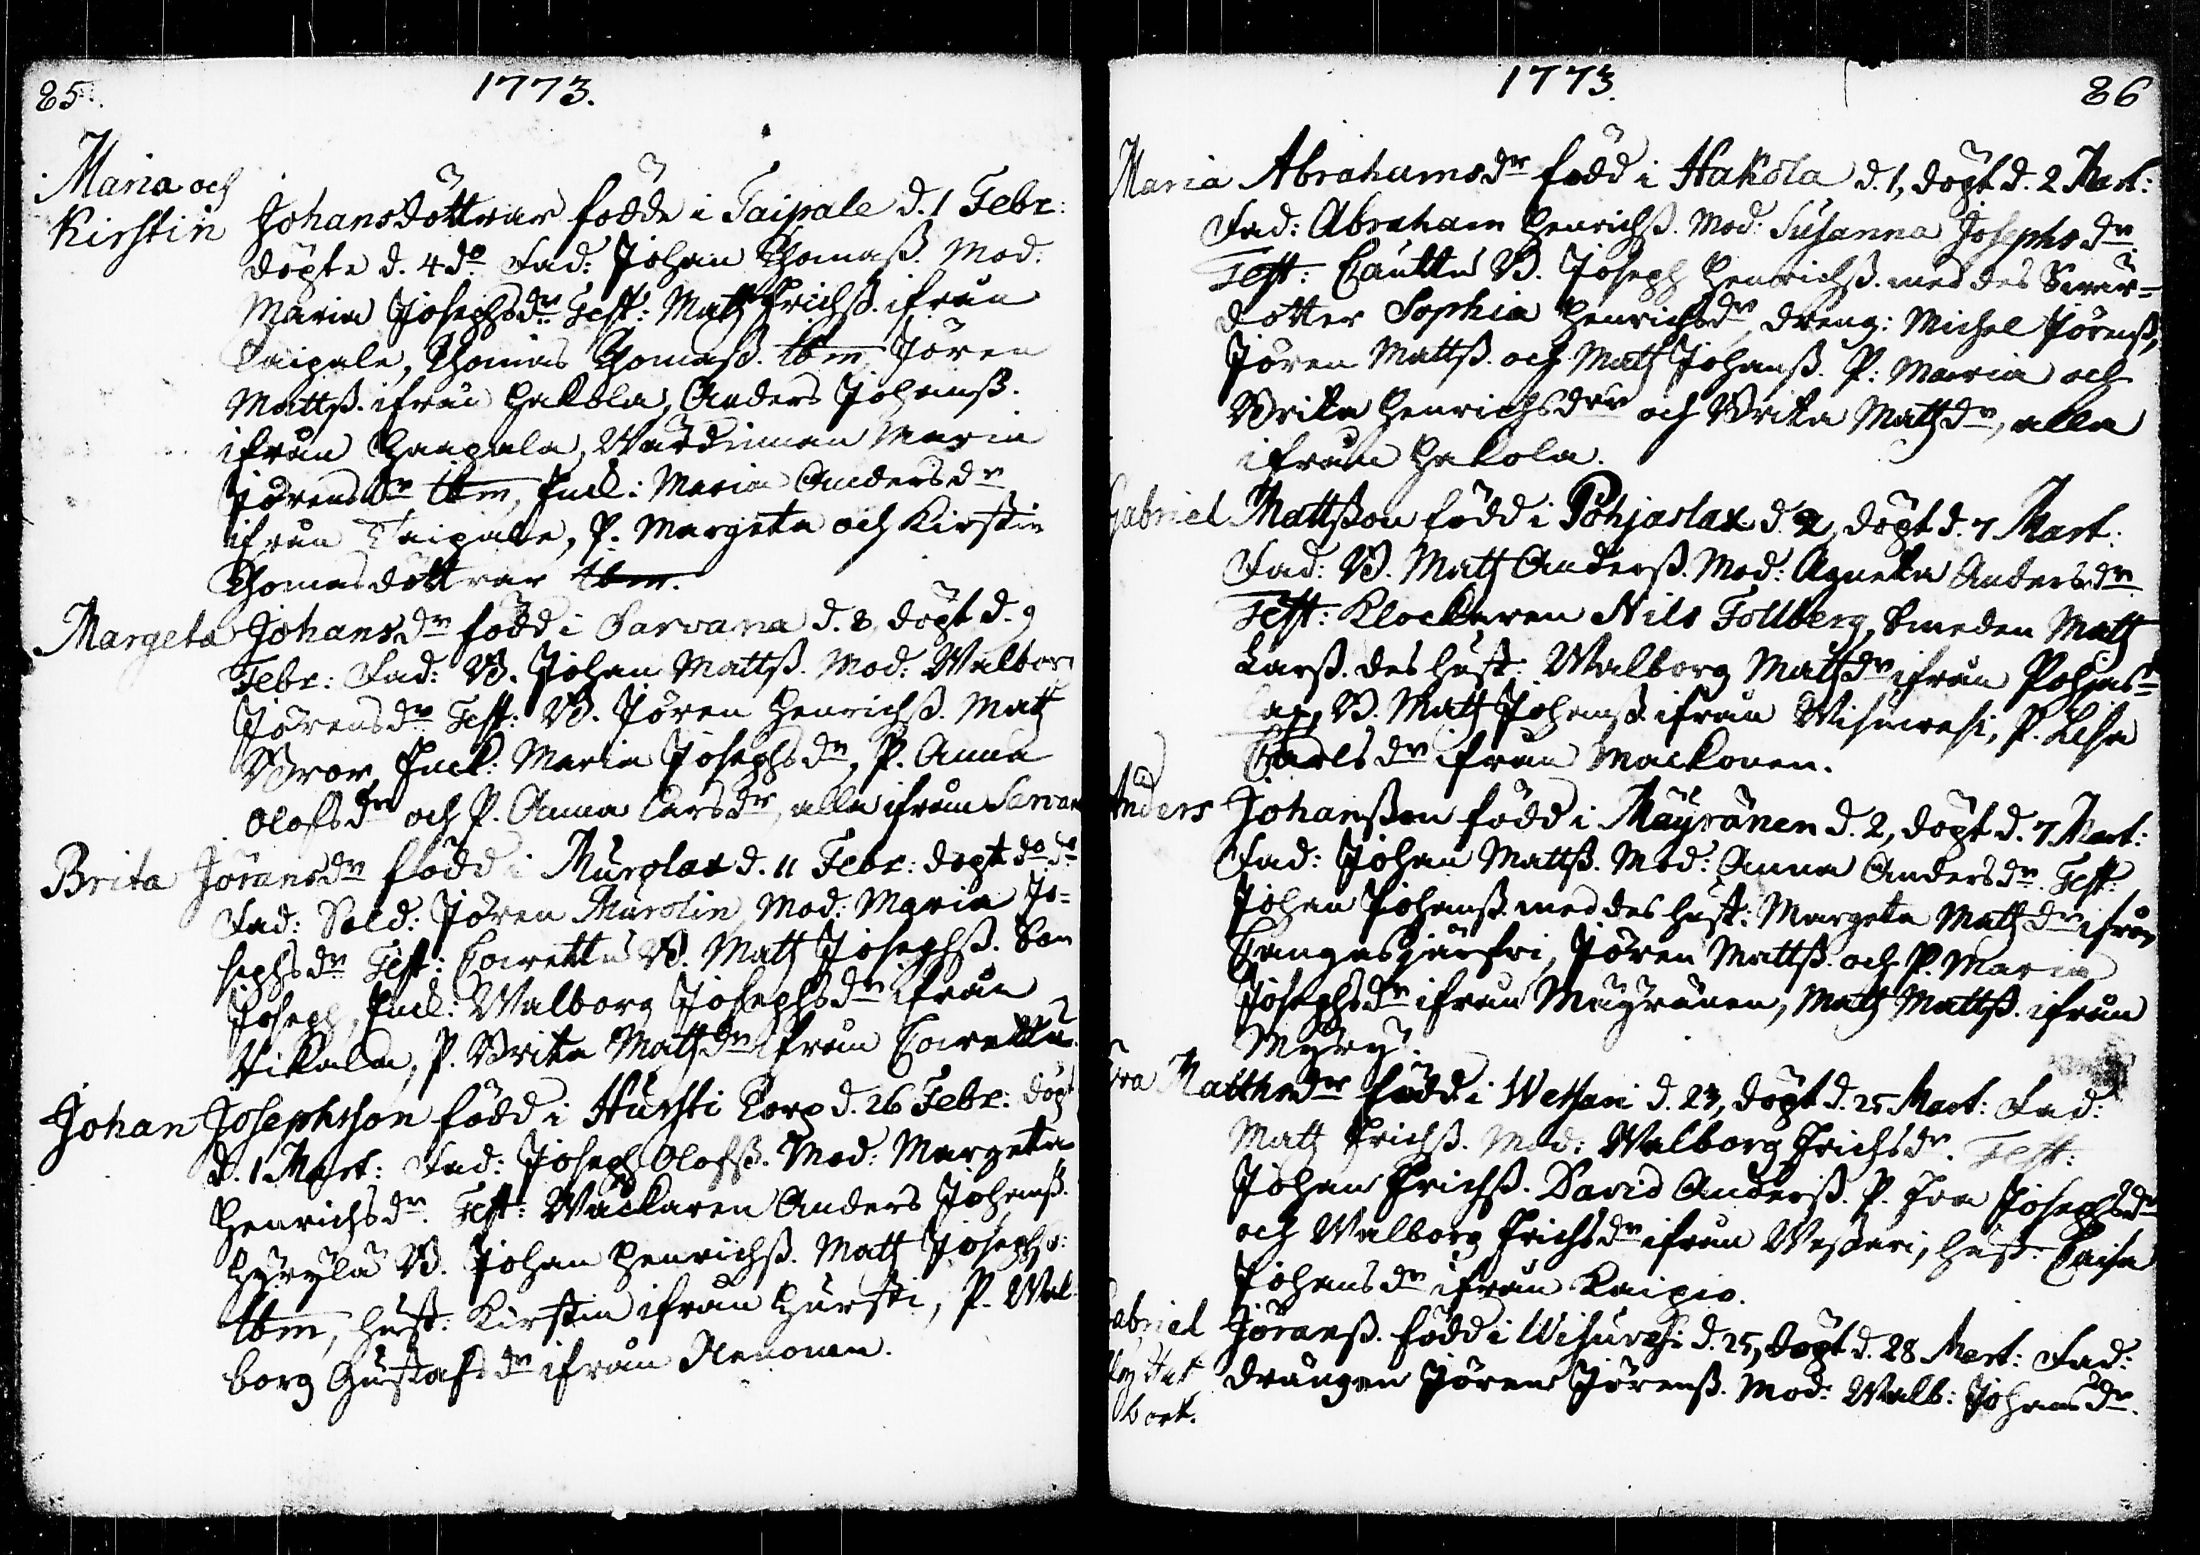 85.
1773.
Maria och
Kirstin Johansdöttrar födde i Taipale d. 1 Febr:
döpte d. 4 do Fad: Johan Thomaß. Mod:
Maria Josephsdr Test: Matts Erichß. ifrån
Taipale, Thomas Thomaß. ibm, Jören
Mattß. ifrån Hakola, Anders Johanß.
ifrån Haapala, Wärdinnan Maria
Jörensdr ibm, Enck: Maria Andersdr
ifrån Taipale, P. Margeta och Kirstin
Thomasdöttrar ibm.
Margeta Johansdr född i Sarvana d. 8, döpt d. 9
Febr: Fad: B. Johan Mattß. Mod: Walborg
Jörensdr Test: B. Jören Henrichß. Matts
Bror, Enck: Maria Josephsdr, P. Anna
Olofsdr och P. Anna Larsdr, alla ifrån Sarvana
Brita Göransdr född i Murolax d. 11 Febr: döpt do do
Fad: Sold: Jören Murolin, Mod: Maria Jo=
sephsdr Test: B. Matts Josephß. Son
Joseph, Enck: Walborg Josephsdr ifrån
Tikala, P. Brita Mattsdr ifrån
Johan Josephsson född i Hursti Torp d. 26 Febr: döpt
d. 1 Mart: Fad: Joseph Olofß. Mod: Margeta
Henrichsdr. Test: Wäckaren Anders Johanß.
Hyrylä B. Johan Henrichß. Matts Josephs:
ibm, Hust: Kirstin ifrån Hursti, P. Wal-
borg Gustafsdr ifrån Nenonen.
1773.
86
Maria Abrahamsdr född i Hakola d. 1, döpt d. 2 Mart:
Fad: Abraham Henrichß. Mod: Susanna Josephsdr.
Test: B. Joseph Henrichß. med des
dotter Sophia Henrichsdr, dreng: Michel Jörenß,
Jören Mattß. och Matts Johanß. P: Maria och
Brita Henrichsdrr och Brita Mattsdr, alla
ifrån Hakola.
Gabriel Mattßon född i Pohjaslax d. 2, döpt d. 7 Mart:
Fad: B. Matts Anderß. Mod: Agneta Andersdr
Test: Klockaren Nils Follberg, Smeden Matts
Larß. des hust: Walborg Mattsdr ifrån Pohjas=
lax, B. Matts Johanß ifrån Wisuvesi, P. Lisa
Carlsdr ifrån Mackonen.
Anders Johanßon född i Mäyränen d. 2, döpt d. 7 Mart:
Fad: Johan Mattß. Mod: Anna Andersdr. Test:
Johan Johanß. med des hust: Margeta Mattsdr ifrån
Kangasjärfvi, Jören Mattß. och P. Maria
Josephsdr ifrån Mäyränen, Matts Mattß. ifrån
Myry.
Eva Matthsdr född i Wessari d. 23, döpt d. 25 Mart: Fad:
Matts Erichß. Mod: Walborg Erichsdr. Test:
Johan Erichß. David Anderß. P. Eva Josephsdr
och Walborg Erichsdr ifrån Wessari, hust: Caisa
Johansdr ifrån Kaipio.
Gabriel Göranß. född i Wisuvesi d. 25, döpt d. 28 Mart: Fad:
flyttat drängen Jören Jörenß. Mod: Walb: Johansdr.
bort.